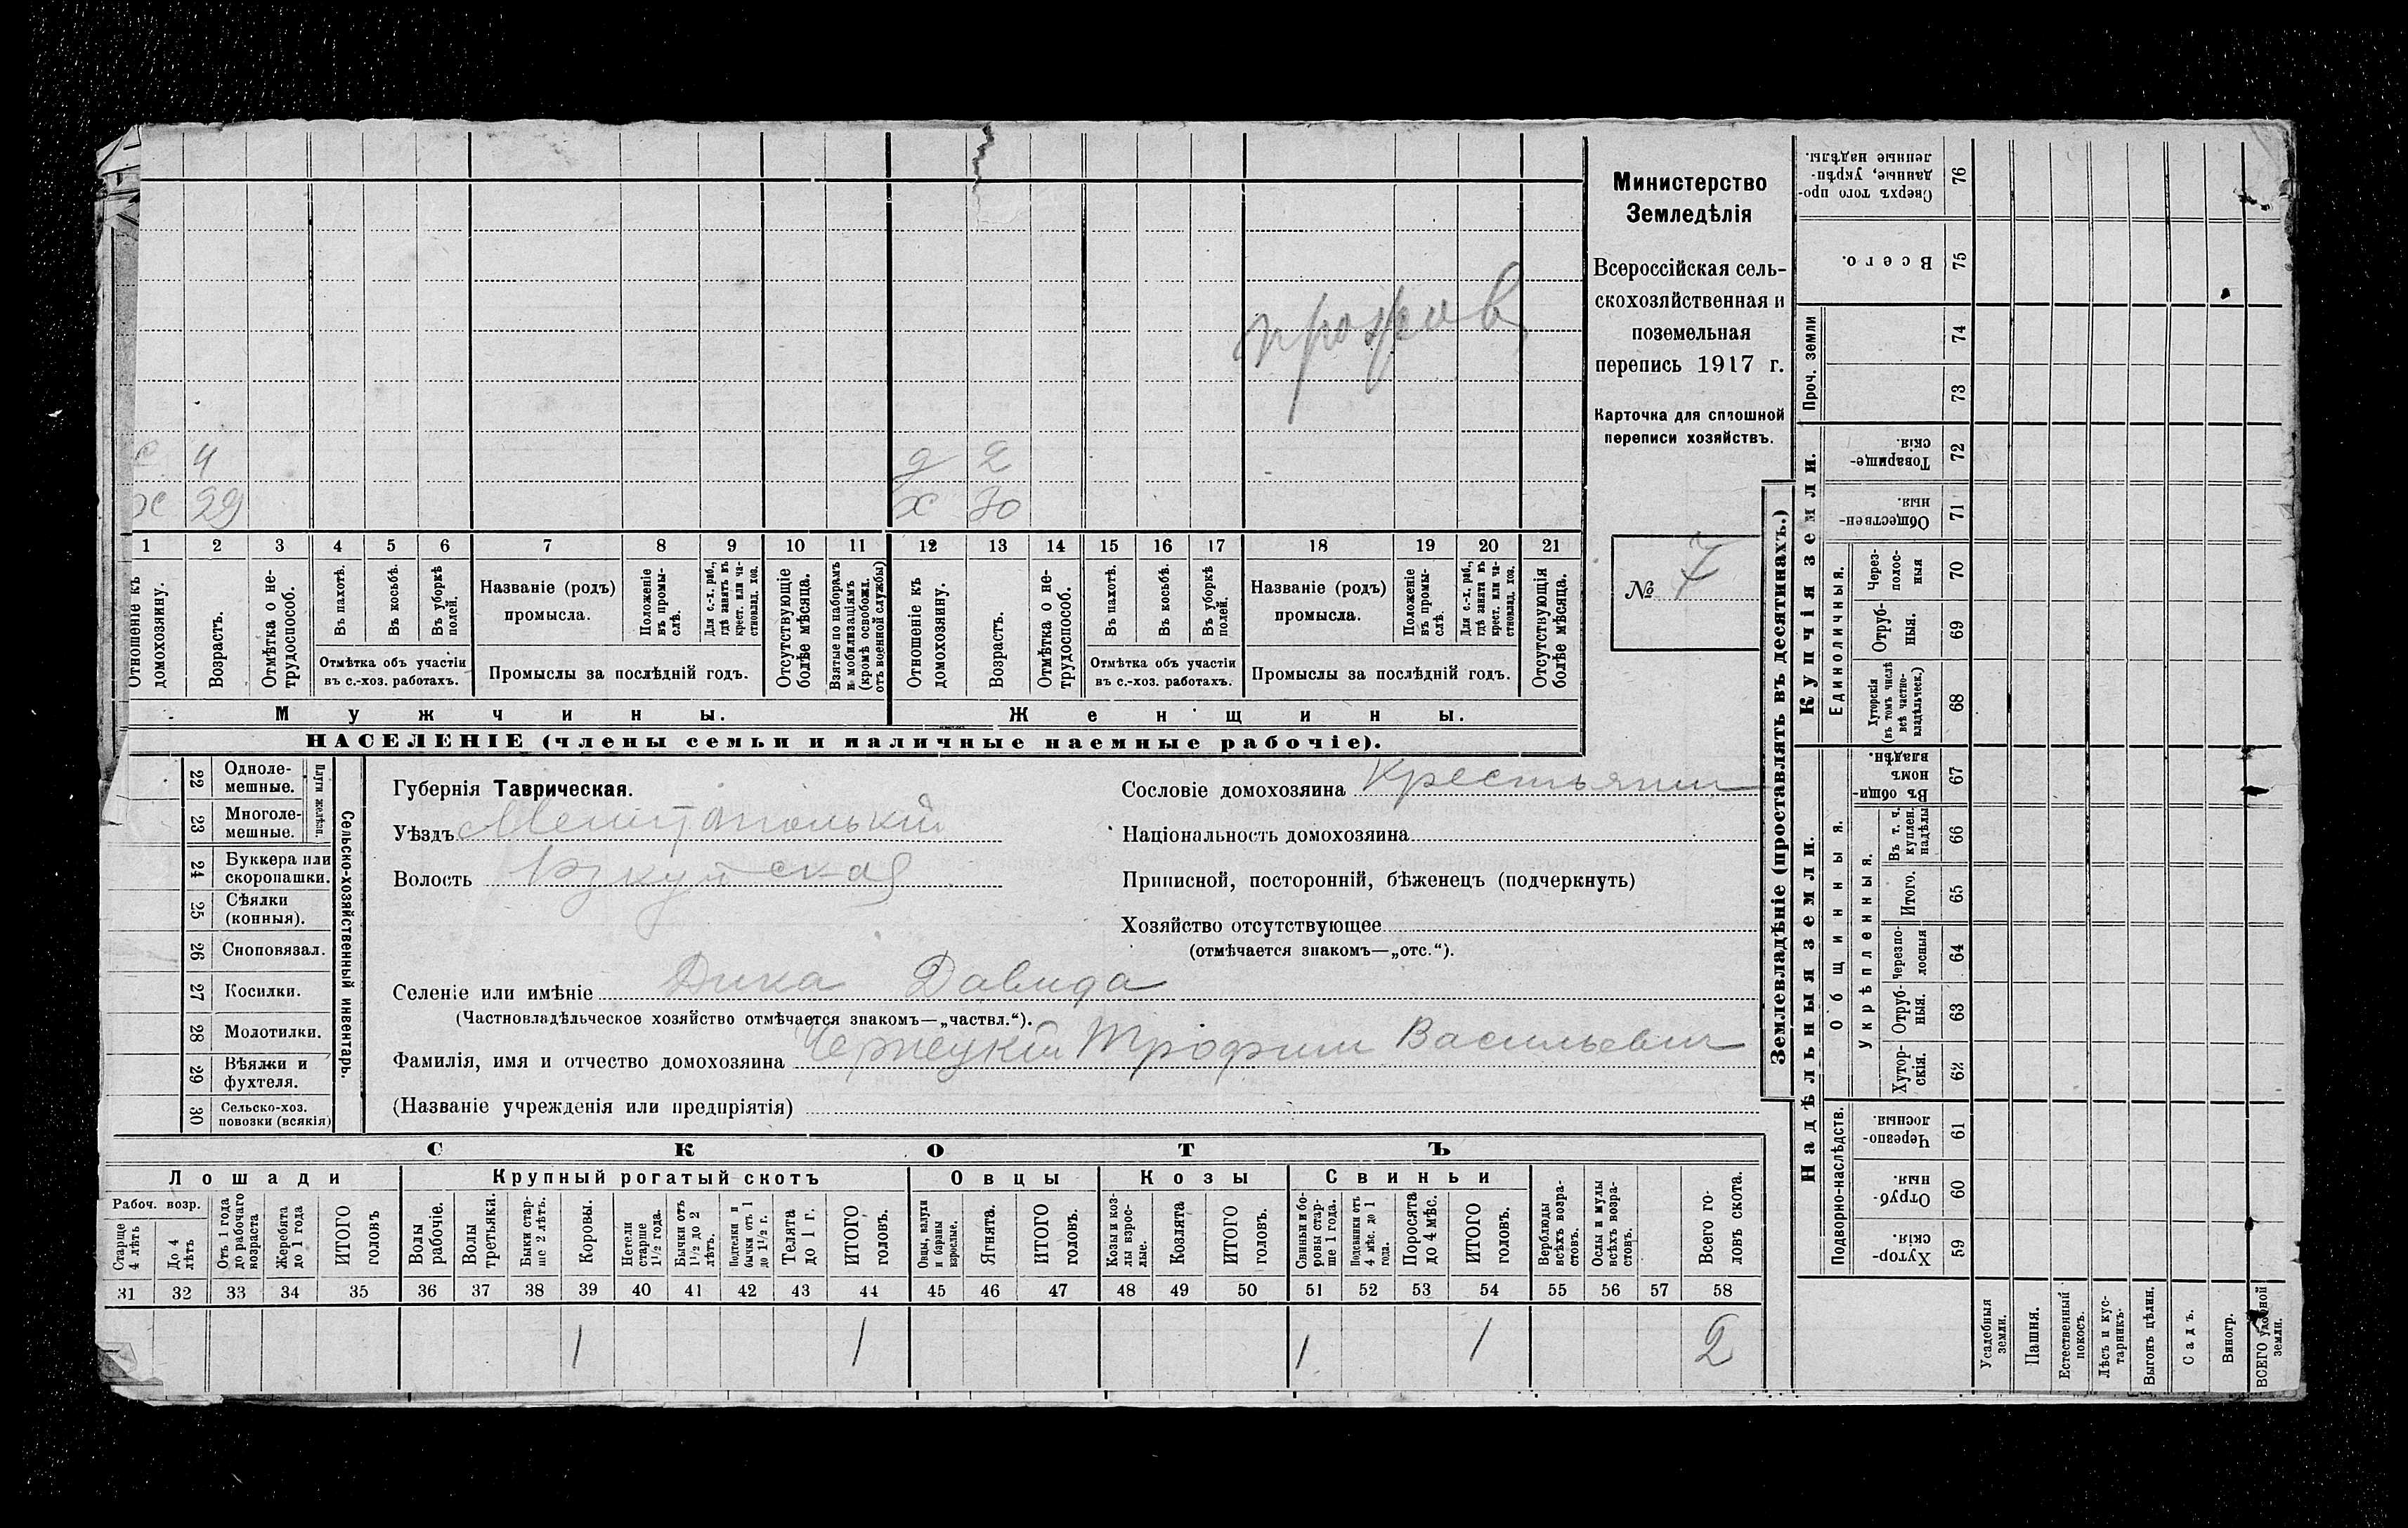 прожив.
с 4 д 2
х 29 х 30
1 2 3 4 5 6 7 8 9 10 11 12 13 14 15 16 17 18 19 20 21
Отношеніе къ домохозяину.
Возрастъ.
Отмѣтка о не-трудоспособ.
Въ пахотѣ.
Въ косьбѣ.
Въ уборкѣ полей.
Отмѣтка объ участіи
въ с.-хоз. работахъ.
Названіе (родъ)
промысла.
Положеніе въ промы-слѣ.
Для с.-х. раб., гдѣ занятъ въ крест. или ча-стновлад. хоз.
Промыслы за послѣдній годъ.
Отсутствующіе болѣе мѣсяца.
Взятые по наборамъ и мобилизаціямъ (кромѣ освобожд. отъ военной службы)
Отношеніе къ домохозяину.
Возрастъ.
Отмѣтка о не-трудоспособ.
Въ пахотѣ.
Въ косьбѣ.
Въ уборкѣ полей.
Отмѣтка объ участіи
въ с.-хоз. работахъ.
Названіе (родъ)
промысла.
Положеніе въ промы-слѣ.
Для с.-х. раб., гдѣ занята въ крест. или ча-стновлад. хоз.
Промыслы за послѣдній годъ.
Отсутствующія болѣе мѣсяца.
Мужчины.
Женщины.
НАСЕЛЕНІЕ (члены семьи и наличные наемные рабочіе).
Министерство
Земледѣлія
Всероссійская сель-
скохозяйственная и
поземельная
перепись 1917 г.
Карточка для сплошной
переписи хозяйствъ.
№ 7
22 Одноле-мешные.
23 Многоле-мешные.
Плуги желѣзн.
24 Буккера или скоропашки.
25 Сѣялки (конныя).
26 Сноповязал.
27 Косилки.
28 Молотилки.
29 Вѣялки и фухтеля.
30 Сельско-хоз. повозки (всякія)
Сельско-хозяйственный инвентарь.
Губернія Таврическая.
Уѣздъ Мелитопольскій
Волость
Селеніе или имѣніе Дика Давида
(Частновладѣльческое хозяйство отмѣчается знакомъ—„частвл.“).
Фамилія, имя и отчество домохозяина Чернецкій Трофим Васильевич
(Названіе учрежденія или предпріятія)
Сословіе домохозяина Крестьянин
Національность домохозяина
Приписной, посторонній, бѣженецъ (подчеркнуть)
Хозяйство отсутствующее
(отмѣчается знакомъ—„отс.“).
СКОТЪ
Лошади Крупный рогатый скотъ Овцы Козы Свиньи
Рабоч. возр.
Старше 4 лѣтъ
До 4 лѣтъ
Отъ 1 года до рабочаго возраста
Жеребята до 1 года
ИТОГО головъ
Волы рабочіе.
Волы третьяки.
Быки стар-ше 2 лѣтъ.
Коровы.
Нетели старше 1½ года.
Бычки отъ 1½ до 2 лѣтъ.
Подтелки и бычки отъ 1 до 1½ г.
Телята до 1 г.
ИТОГО головъ.
Овцы, валухи и бараны взрослые.
Ягнята.
ИТОГО головъ.
Козы и коз-лы взрос-лые.
Козлята
ИТОГО головъ.
Свиньи и бо-ровы стар-ше 1 года.
Подсвинки отъ 4 мѣс. до 1 года.
Поросята до 4 мѣс.
ИТОГО головъ.
Верблюды всѣхъ возра-стовъ.
Ослы и мулы всѣхъ возра-стовъ.
Всего го-ловъ скота.
31 32 33 34 35 36 37 38 39 40 41 42 43 44 45 46 47 48 49 50 51 52 53 54 55 56 57 58
1 1 1 1 2
Землевладѣніе (проставлять въ десятинахъ.)
Надѣльныя земли.
Купчія земли.
Проч. земли
Подворно-наслѣдств.
Общинныя.
Укрѣпленныя.
Единоличныя.
Сверхъ того про-данные, укрѣп-ленные надѣлы. 76
Всего. 75
74
73
Товарище-скія. 72
Обществен-ныя. 71
Через-полос-ныя 70
Отруб-ныя. 69
Хуторскія (въ томъ числѣ всѣ частно-владѣльческ.) 68
Въ общи-номъ владѣн. 67
Въ т. ч. куплен. надѣлы 66
Итого. 65
Черезпо-лосныя 64
Отруб-ныя. 63
Хутор-скія. 62
Черезпо-лосныя. 61
Отруб-ныя. 60
Хутор-скія. 59
Усадебныя земли.
Пашня.
Естественный покосъ.
Лѣсъ и кус-тарникъ.
Выгонъ цѣлин.
Садъ.
Виногр.
ВСЕГО удобной земли.